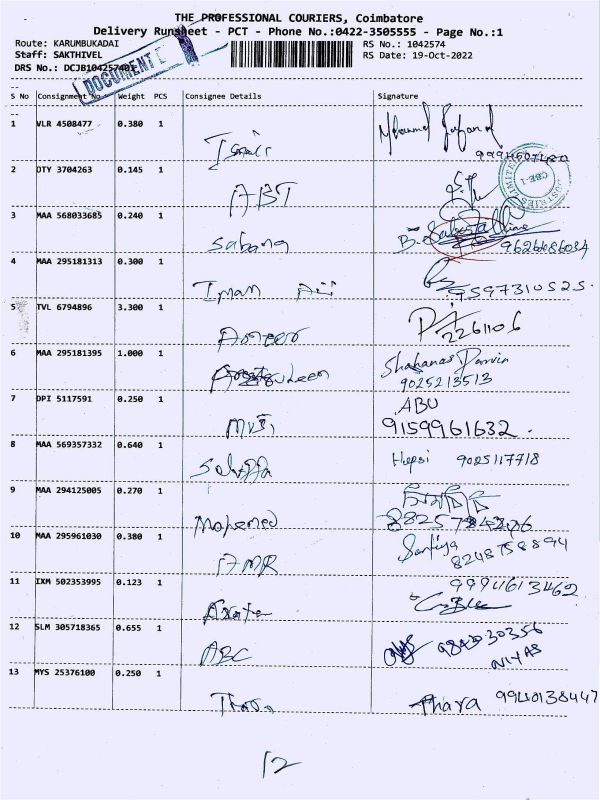 THE PROFESSIONAL COURIERS, Coimbatore
Delivery Runsheet - PCT - Phone No.:0422-3505555 - Page No.:1
Route: KARUMBUKADAI RS No.: 1042574
Staff: SAKTHIVEL RS Date: 19-Oct-2022
DRS No.: DCJB104257401
DOCUMENT
S No Consignment No. Weight PCS Consignee Details Signature
1 VLR 4508477 0.380 1
Ismail
2 DTY 3704263 0.145 1
ABT
CBE-1
3 MAA 568033685 0.240 1
Sabana 9626686034
4 MAA 295181313 0.300 1
Iman Ali 9597310525.
5 TVL 6794896 3.300 1
Ameer 2261106
6 MAA 295181395 1.000 1 Shahanas Parvin
9025213513
7 DPI 5117591 0.250 1 ABU
9159961632.
8 MAA 569357332 0.640 1 Hepsi 9025117718
9 MAA 294125005 0.270 1
Mohamed
10 MAA 295961030 0.380 1
AMR 8248758894
11 IXM 502353995 0.123 1 9994613462
12 SLM 305718365 0.655 1
ABC NIYAS
13 MYS 25376100 0.250 1
Thara Thara 9940138447
12